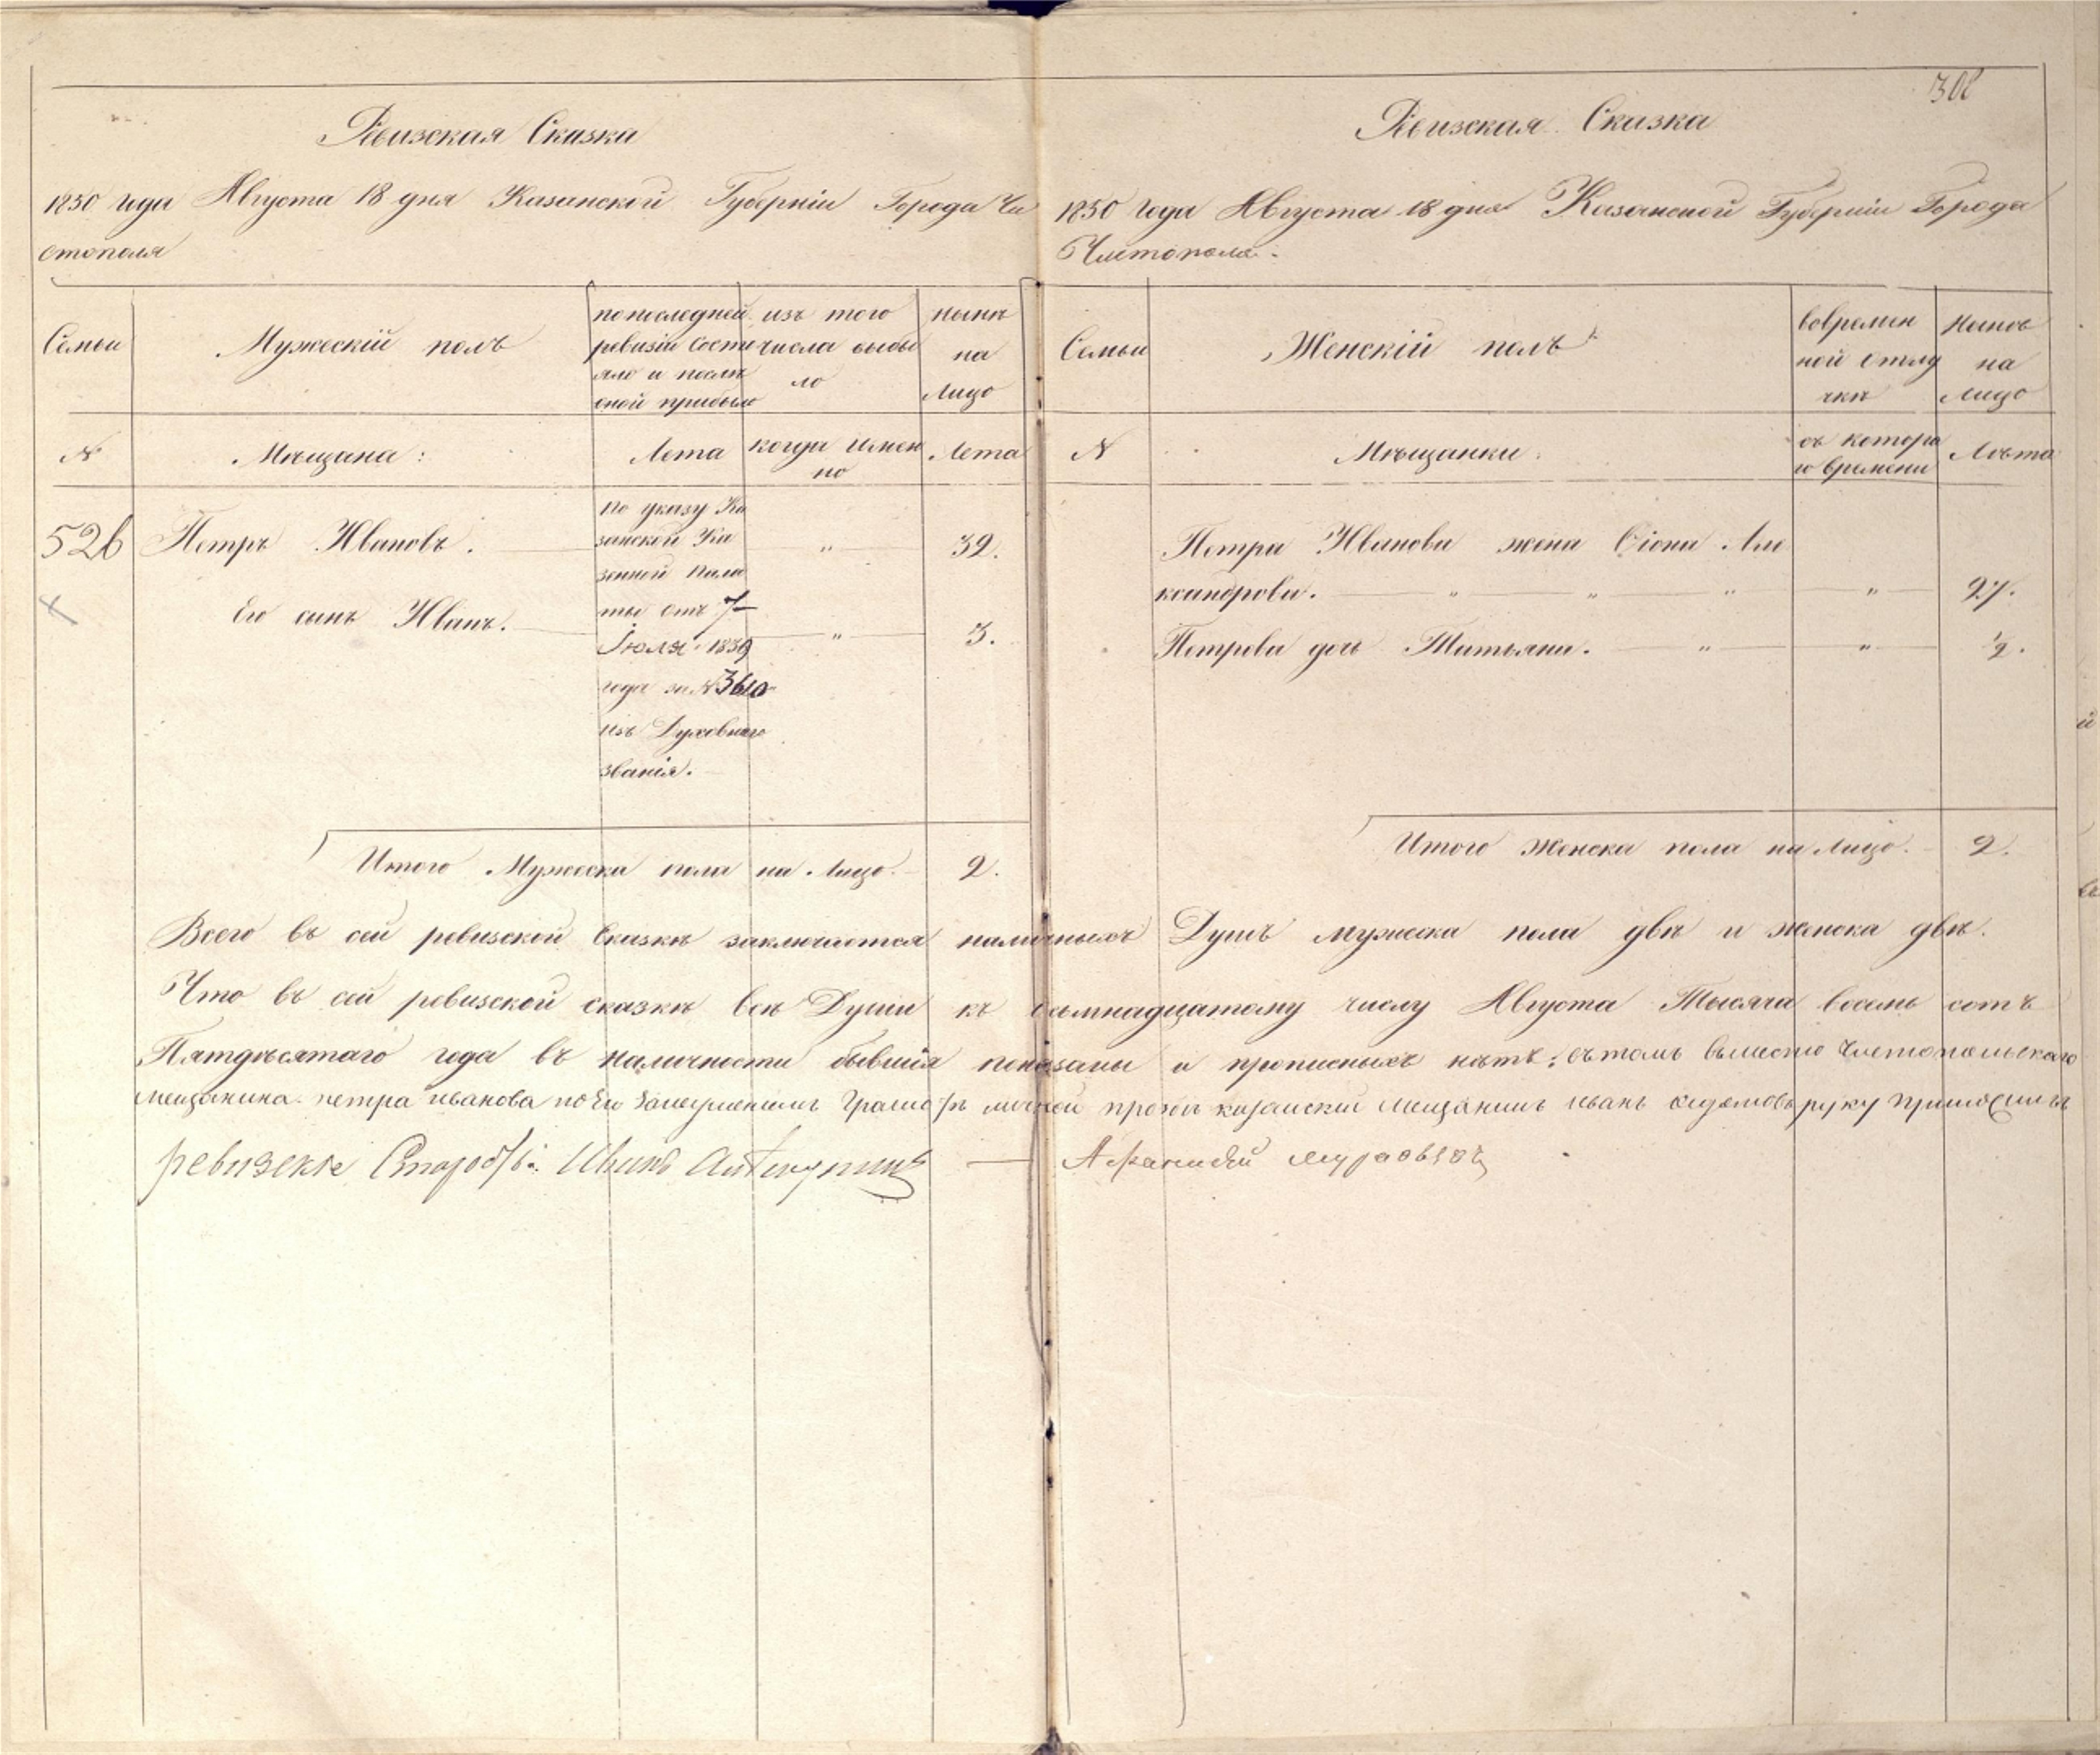 308
Ревизская Сказка
1850 года Августа 18 дня Казанской Губерніи Города Чи
стополя
Семьи
Мужескій полъ
по последней
ревизіи состо
яло и послѣ
оной прибыло
изъ того
числа выбы
ло
нынѣ
на
лицо
№
Мѣщана:
Лета
когда имен
но
Лета
526
Петръ Ивановъ.
по указу Ка
занской Ка
зенной Пала
ты отъ 7
Іюля 1839
года за № 3610
изъ Духовнаго
званія.
"
32.
Его сынъ Иванъ.
"
3.
Итого Мужеска пола на лицо.
2.
Ревизская Сказка
1850 Года Августа 18 дня Казанской Губерніи Города
Чистополя.
Семьи
Женскій полъ
вовремен
ной отлу
чкѣ
Нынѣ
на
лицо
№
Мѣщанки:
съ котора
го времени
Лѣта
Петра Иванова жена Ѳіона Але
ксандрова. " " " " 27.
Петрова дочь Татьяна. " " ½.
Итого Женска пола на лицо. 2.
Всего въ сей ревизской сказкѣ заключается наличныхъ Душъ мужеска пола двѣ и женска двѣ.
Что въ сей ревизской сказкѣ всѣ Души къ осьмнадцатому числу Августа Тысяча восемь сотъ
Пятдѣсятаго года въ наличности бывшія показаны и прописныхъ нѣтъ; въ томъ вместо Чистопольскаго
мещанина петра иванова по его Грамотѣ личной прозбѣ казанский мещанинъ иванъ руку приложилъ
ревизские Иванъ
Афанасий